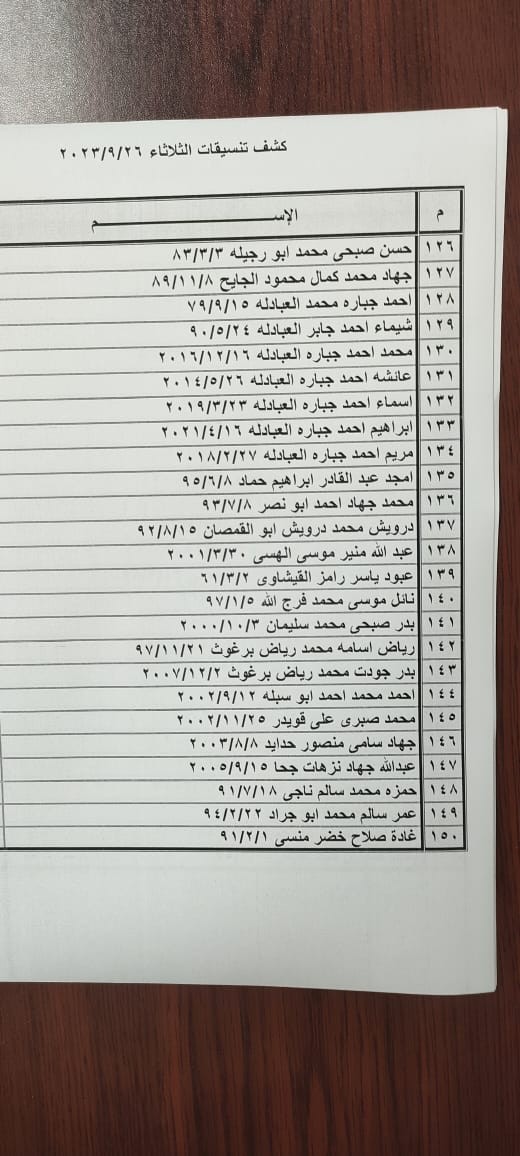 كشف تنسيقات الثلاثاء ٢٠٢٣/٩/٢٦
م الإســـــــم
١٢٦ حسن صبحى محمد ابو رجيله ٨٣/٣/٣
١٢٧ جهاد محمد كمال محمود الجايح ٨٩/١١/٨
١٢٨ احمد جباره محمد العبادله ٧٩/٩/١٥
١٢٩ شيماء احمد جابر العبادله ٩٠/٥/٢٤
١٣٠ محمد احمد جباره العبادله ٢٠١٦/١٢/١٦
١٣١ عائشه احمد جباره العبادله ٢٠١٤/٥/٢٦
١٣٢ اسماء احمد جباره العبادله ٢٠١٩/٣/٢٣
١٣٣ ابراهيم احمد جباره العبادله ٢٠٢١/٤/١٦
١٣٤ مريم احمد جباره العبادله ٢٠١٨/٢/٢٧
١٣٥ امجد عبد القادر ابراهيم حماد ٩٥/٦/٨
١٣٦ محمد جهاد احمد ابو نصر ٩٣/٧/٨
١٣٧ درويش محمد درويش ابو القمصان ٩٢/٨/١٥
١٣٨ عبد الله منير موسى الهسى ٢٠٠١/٣/٣٠
١٣٩ عبود ياسر رامز القيشاوى ٦١/٣/٢
١٤٠ نائل موسى محمد فرج الله ٩٧/١/٥
١٤١ بدر صبحى محمد سليمان ٢٠٠٠/١٠/٣
١٤٢ رياض اسامه محمد رياض برغوث ٩٧/١١/٢١
١٤٣ بدر جودت محمد رياض برغوث ٢٠٠٧/١٢/٢
١٤٤ احمد محمد احمد ابو سبله ٢٠٠٢/٩/١٢
١٤٥ محمد صبرى على قويدر ٢٠٠٢/١١/٢٥
١٤٦ جهاد سامى منصور حدايد ٢٠٠٣/٨/٨
١٤٧ عبدالله جهاد نزهات جحا ٢٠٠٥/٩/١٥
١٤٨ حمزه محمد سالم ناجى ٩١/٧/١٨
١٤٩ عمر سالم محمد ابو جراد ٩٤/٢/٢٢
١٥٠ غادة صلاح خضر منسى ٩١/٢/١